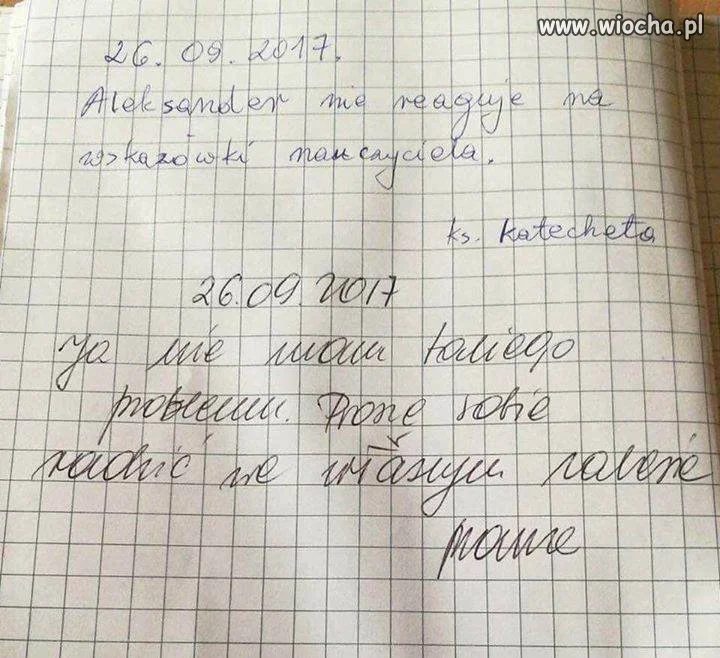 www.wiocha.pl
26. 09. 2017.
Aleksander nie reaguje na
wskazówki nauczyciela.
ks. katecheta
26.09.2017
Ja nie mam takiego
problemu. Proszę sobie
radzić we własnym zakresie